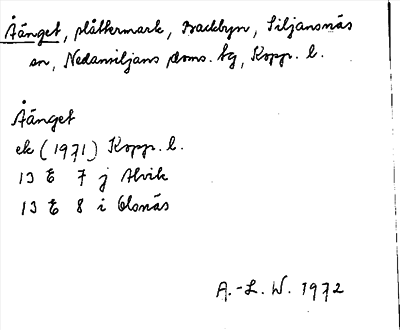 Åänget, slåttermark, Backbyn, Siljansnäs
sn, Nedansiljans doms. tg, Kopp. l.
Åänget
ek (1971) Kopp. l.
13 E 7 j Alvik
13 E 8 i Olsnäs
A.-L. W. 1972